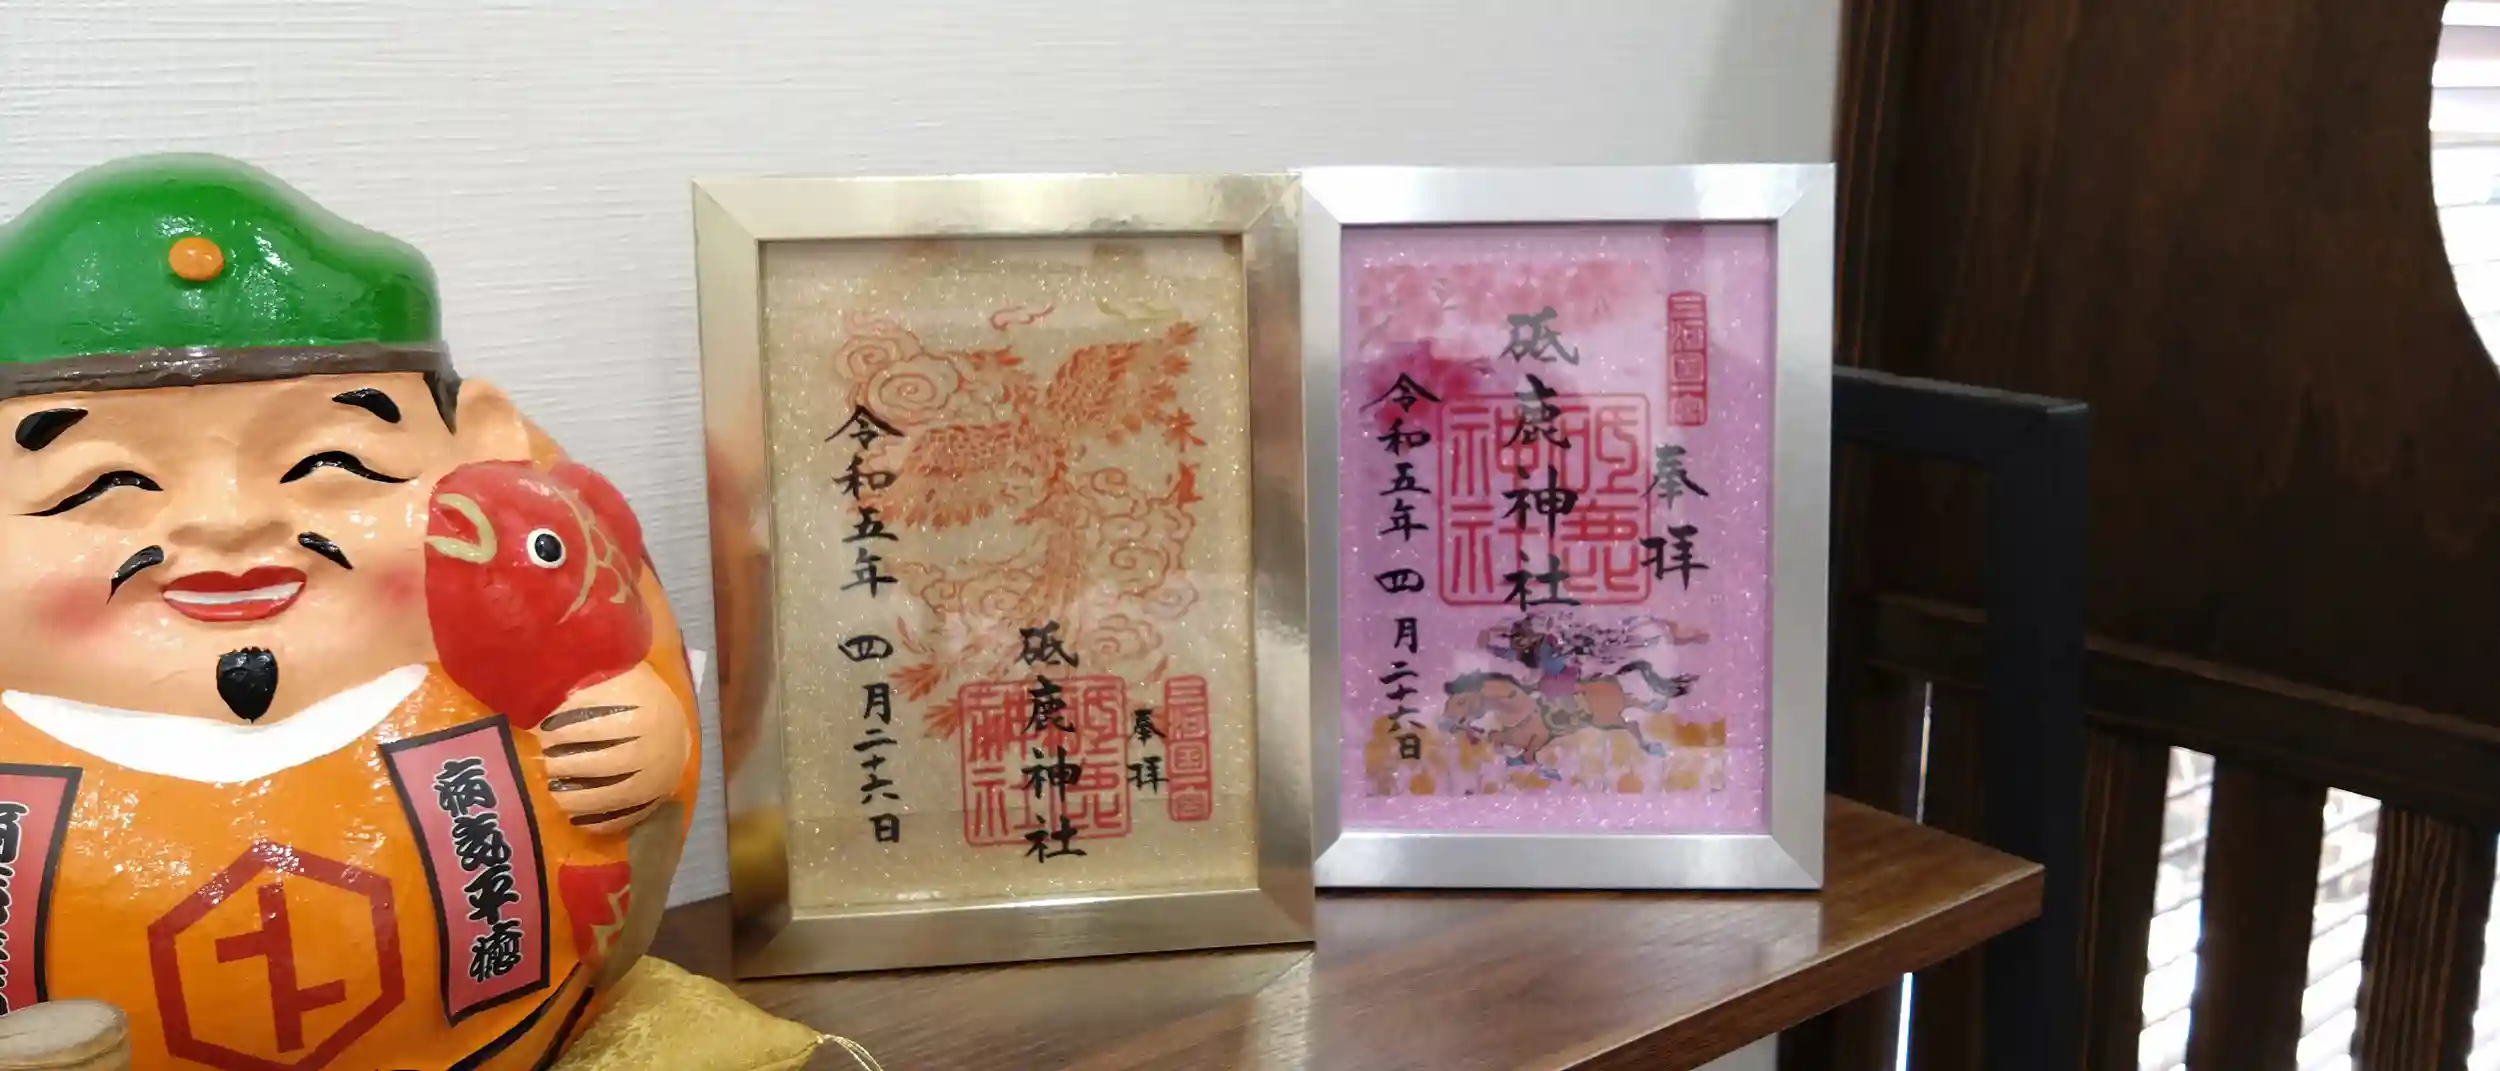 病気平癒
朱雀
令和五年 四月二十六日
砥鹿神社
奉拝
三河国一宮
砥鹿神社
三河国一宮
奉拝
砥鹿神社
砥鹿神社
令和五年 四月二十六日